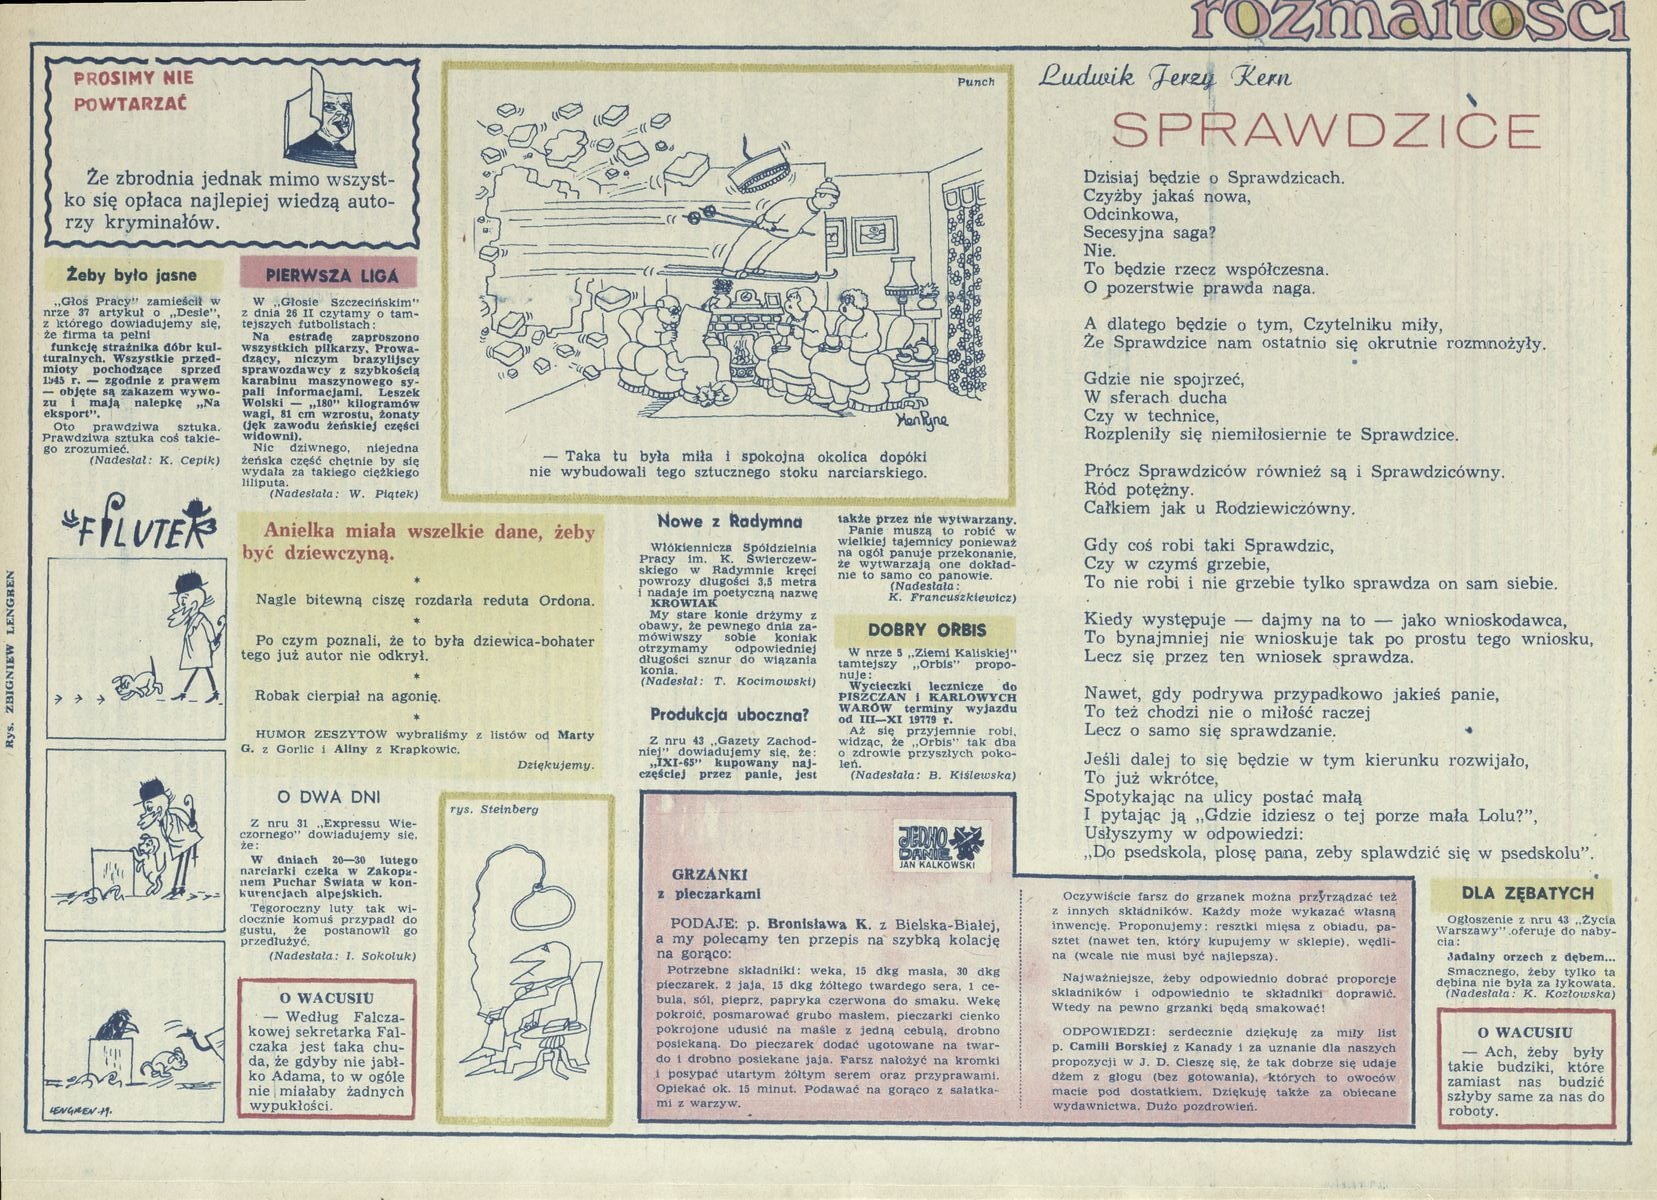 rozmaitości
PROSIMY NIE
POWTARZAĆ
Że zbrodnia jednak mimo wszyst-
ko się opłaca najlepiej wiedzą auto-
rzy kryminałów.
Żeby było jasne
„Głos Pracy” zamieścił w
nrze 37 artykuł o „Desie”,
z którego dowiadujemy się,
że firma ta pełni
funkcję strażnika dóbr kul-
turalnych. Wszystkie przed-
mioty pochodzące sprzed
1945 r. — zgodnie z prawem
— objęte są zakazem wywo-
zu i mają nalepkę „Na
eksport”.
Oto prawdziwa sztuka.
Prawdziwa sztuka coś takie-
go zrozumieć.
(Nadesłał: K. Cepik)
PIERWSZA LIGA
W „Głosie Szczecińskim”
z dnia 26 II czytamy o tam-
tejszych futbolistach:
Na estradę zaproszono
wszystkich piłkarzy. Prowa-
dzący, niczym brazylijscy
sprawozdawcy z szybkością
karabinu maszynowego sy-
pali informacjami. Leszek
Wolski — „180” kilogramów
wagi, 81 cm wzrostu, żonaty
(jęk zawodu żeńskiej części
widowni).
Nic dziwnego, niejedna
żeńska część chętnie by się
wydała za takiego ciężkiego
liliputa.
(Nadesłała: W. Piątek)
Punch
KenPyne
— Taka tu była miła i spokojna okolica dopóki
nie wybudowali tego sztucznego stoku narciarskiego.
FILUTEK
Rys. ZBIGNIEW LENGREN
LENGREN-79.
Anielka miała wszelkie dane, żeby
być dziewczyną.
*
Nagle bitewną ciszę rozdarła reduta Ordona.
*
Po czym poznali, że to była dziewica-bohater
tego już autor nie odkrył.
*
Robak cierpiał na agonię.
*
HUMOR ZESZYTÓW wybraliśmy z listów od Marty
G. z Gorlic i Aliny z Krapkowic.
Dziękujemy.
O DWA DNI
Z nru 31 „Expressu Wie-
czornego” dowiadujemy się,
że:
W dniach 20—30 lutego
narciarki czeka w Zakopa-
nem Puchar Świata w kon-
kurencjach alpejskich.
Tegoroczny luty tak wi-
docznie komuś przypadł do
gustu, że postanowił go
przedłużyć.
(Nadesłała: I. Sokoluk)
O WACUSIU
— Według Falcza-
kowej sekretarka Fal-
czaka jest taka chu-
da, że gdyby nie jabł-
ko Adama, to w ogóle
nie miałaby żadnych
wypukłości.
rys. Steinberg
Nowe z Radymna
Włókiennicza Spółdzielnia
Pracy im. K. Świerczew-
skiego w Radymnie kręci
powrozy długości 3,5 metra
i nadaje im poetyczną nazwę
KROWIAK
My stare konie drżymy z
obawy, że pewnego dnia za-
mówiwszy sobie koniak
otrzymamy odpowiedniej
długości sznur do wiązania
konia.
(Nadesłał: T. Kocimowski)
Produkcja uboczna?
Z nru 43 „Gazety Zachod-
niej” dowiadujemy się, że:
„IXI-65” kupowany naj-
częściej przez panie, jest
także przez nie wytwarzany.
Panie muszą to robić w
wielkiej tajemnicy ponieważ
na ogół panuje przekonanie,
że wytwarzają one dokład-
nie to samo co panowie.
(Nadesłała:
K. Francuszkiewicz)
DOBRY ORBIS
W nrze 5 „Ziemi Kaliskiej”
tamtejszy „Orbis” propo-
nuje:
Wycieczki lecznicze do
PISZCZAN i KARLOWYCH
WARÓW terminy wyjazdu
od III—XI 19779 r.
Aż się przyjemnie robi,
widząc, że „Orbis” tak dba
o zdrowie przyszłych poko-
leń.
(Nadesłała: B. Kiślewska)
Ludwik Jerzy Kern
SPRAWDZICE
Dzisiaj będzie o Sprawdzicach.
Czyżby jakaś nowa,
Odcinkowa,
Secesyjna saga?
Nie.
To będzie rzecz współczesna.
O pozerstwie prawda naga.
A dlatego będzie o tym, Czytelniku miły,
Że Sprawdzice nam ostatnio się okrutnie rozmnożyły.
Gdzie nie spojrzeć,
W sferach ducha
Czy w technice,
Rozpleniły się niemiłosiernie te Sprawdzice.
Prócz Sprawdziców również są i Sprawdzicówny.
Ród potężny.
Całkiem jak u Rodziewiczówny.
Gdy coś robi taki Sprawdzic,
Czy w czymś grzebie,
To nie robi i nie grzebie tylko sprawdza on sam siebie.
Kiedy występuje — dajmy na to — jako wnioskodawca,
To bynajmniej nie wnioskuje tak po prostu tego wniosku,
Lecz się przez ten wniosek sprawdza.
Nawet, gdy podrywa przypadkowo jakieś panie,
To też chodzi nie o miłość raczej
Lecz o samo się sprawdzanie.
Jeśli dalej to się będzie w tym kierunku rozwijało,
To już wkrótce,
Spotykając na ulicy postać małą
I pytając ją „Gdzie idziesz o tej porze mała Lolu?”,
Usłyszymy w odpowiedzi:
„Do psedskola, plosę pana, zeby splawdzić się w psedskolu”.
JEDNO
DANIE
JAN KALKOWSKI
GRZANKI
z pieczarkami
PODAJE: p. Bronisława K. z Bielska-Białej,
a my polecamy ten przepis na szybką kolację
na gorąco:
Potrzebne składniki: weka, 15 dkg masła, 30 dkg
pieczarek, 2 jaja, 15 dkg żółtego twardego sera, 1 ce-
bula, sól, pieprz, papryka czerwona do smaku. Wekę
pokroić, posmarować grubo masłem, pieczarki cienko
pokrojone udusić na maśle z jedną cebulą, drobno
posiekaną. Do pieczarek dodać ugotowane na twar-
do i drobno posiekane jaja. Farsz nałożyć na kromki
i posypać utartym żółtym serem oraz przyprawami.
Opiekać ok. 15 minut. Podawać na gorąco z sałatka-
mi z warzyw.
Oczywiście farsz do grzanek można przyrządzać też
z innych składników. Każdy może wykazać własną
inwencję. Proponujemy: resztki mięsa z obiadu, pa-
sztet (nawet ten, który kupujemy w sklepie), wędli-
na (wcale nie musi być najlepsza).
Najważniejsze, żeby odpowiednio dobrać proporcje
składników i odpowiednio te składniki doprawić.
Wtedy na pewno grzanki będą smakować!
ODPOWIEDZI: serdecznie dziękuję za miły list
p. Camili Borskiej z Kanady i za uznanie dla naszych
propozycji w J. D. Cieszę się, że tak dobrze się udaje
dżem z głogu (bez gotowania), których to owoców
macie pod dostatkiem. Dziękuję także za obiecane
wydawnictwa. Dużo pozdrowień.
DLA ZĘBATYCH
Ogłoszenie z nru 43 „Życia
Warszawy” oferuje do naby-
cia:
Jadalny orzech z dębem...
Smacznego, żeby tylko ta
dębina nie była za łykowata.
(Nadesłała: K. Kozłowska)
O WACUSIU
— Ach, żeby były
takie budziki, które
zamiast nas budzić
szłyby same za nas do
roboty.